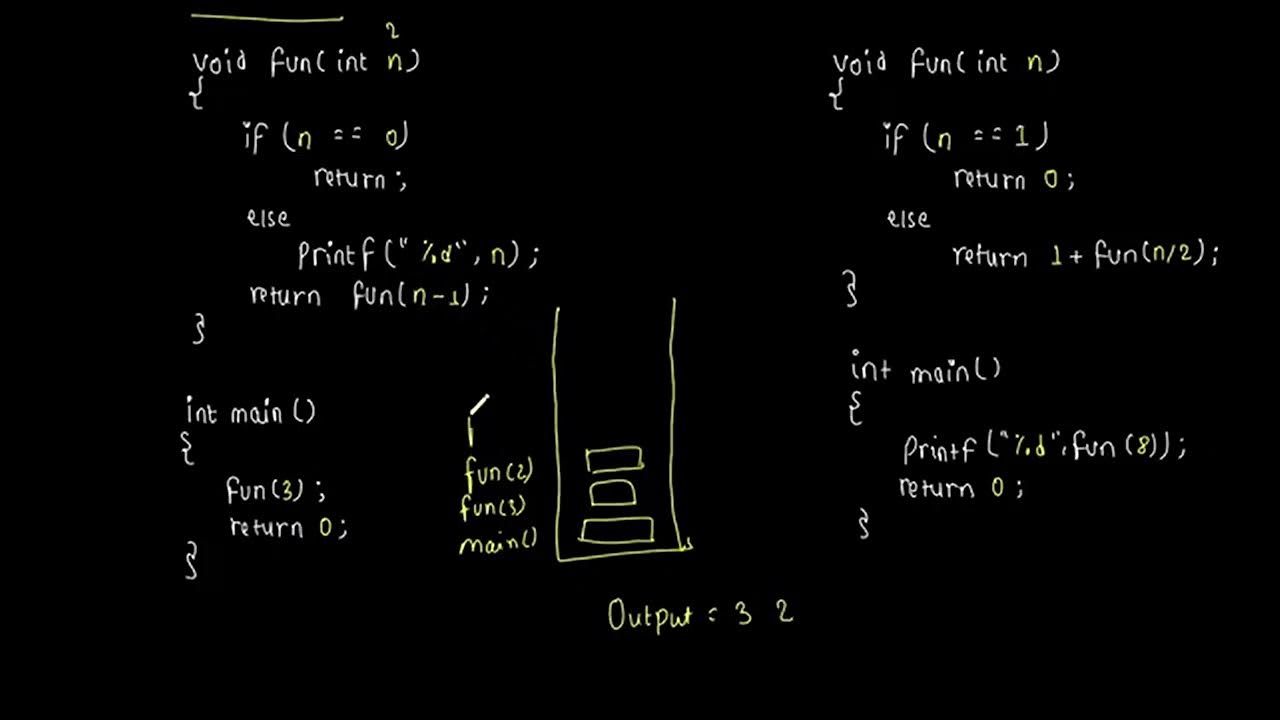 2
void fun(int n)
{
if (n == 0)
return;
else
printf("%d", n);
return fun(n-1);
}
int main()
{
fun(3);
return 0;
}
fun(2)
fun(3)
main()
Output = 3 2
void fun(int n)
{
if (n == 1)
return 0;
else
return 1 + fun(n/2);
}
int main()
{
printf("%d",fun(8));
return 0;
}